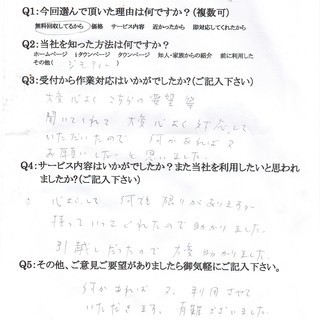 Q1:今回選んで頂いた理由は何ですか?(複数可)
無料回収してるから 価格 サービス内容 近かったから 即対応してくれたから
Q2:当社を知った方法は何ですか?
ホームページ iタウンページ タウンページ 知人・家族からの紹介 前に利用した
その他( ジモティー )
Q3:受付から作業対応はいかがでしたか?(ご記入下さい)
大変心よく こちらの要望等
聞いてくれて 大変心よく対応して
いただいたので 何かあれば又
お願いしたいと思いました。
Q4:サービス内容はいかがでしたか?また当社を利用したいと思われ
ましたか?(ご記入下さい)
心よくして 何でも限りがありますが
持っていってくれたので助かりました
引越しだったので大変助かりました
Q5:その他、ご意見ご要望がありましたら御気軽にご記入下さい。
何かあれば又、利用させて
いただきます。有難うございました。